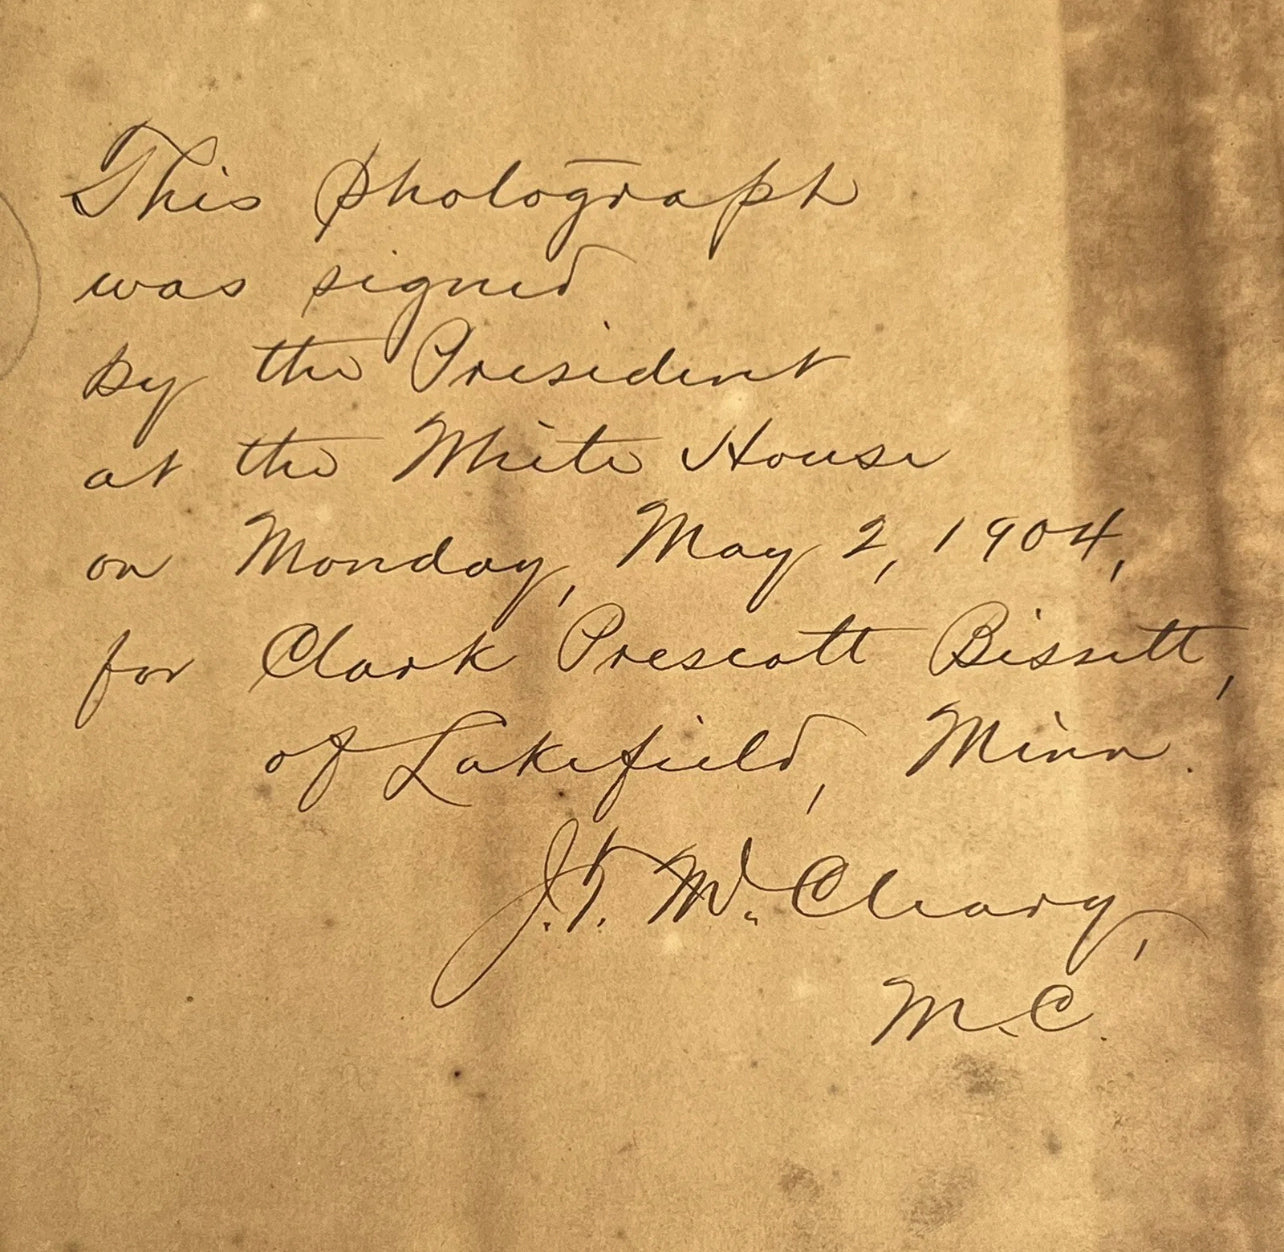 This photograph
was signed
by the President
at the White House
on Monday, May 2, 1904,
for Clark Prescott Bissett,
of Lakefield, Minn.
J.T. McCleary,
M.C.